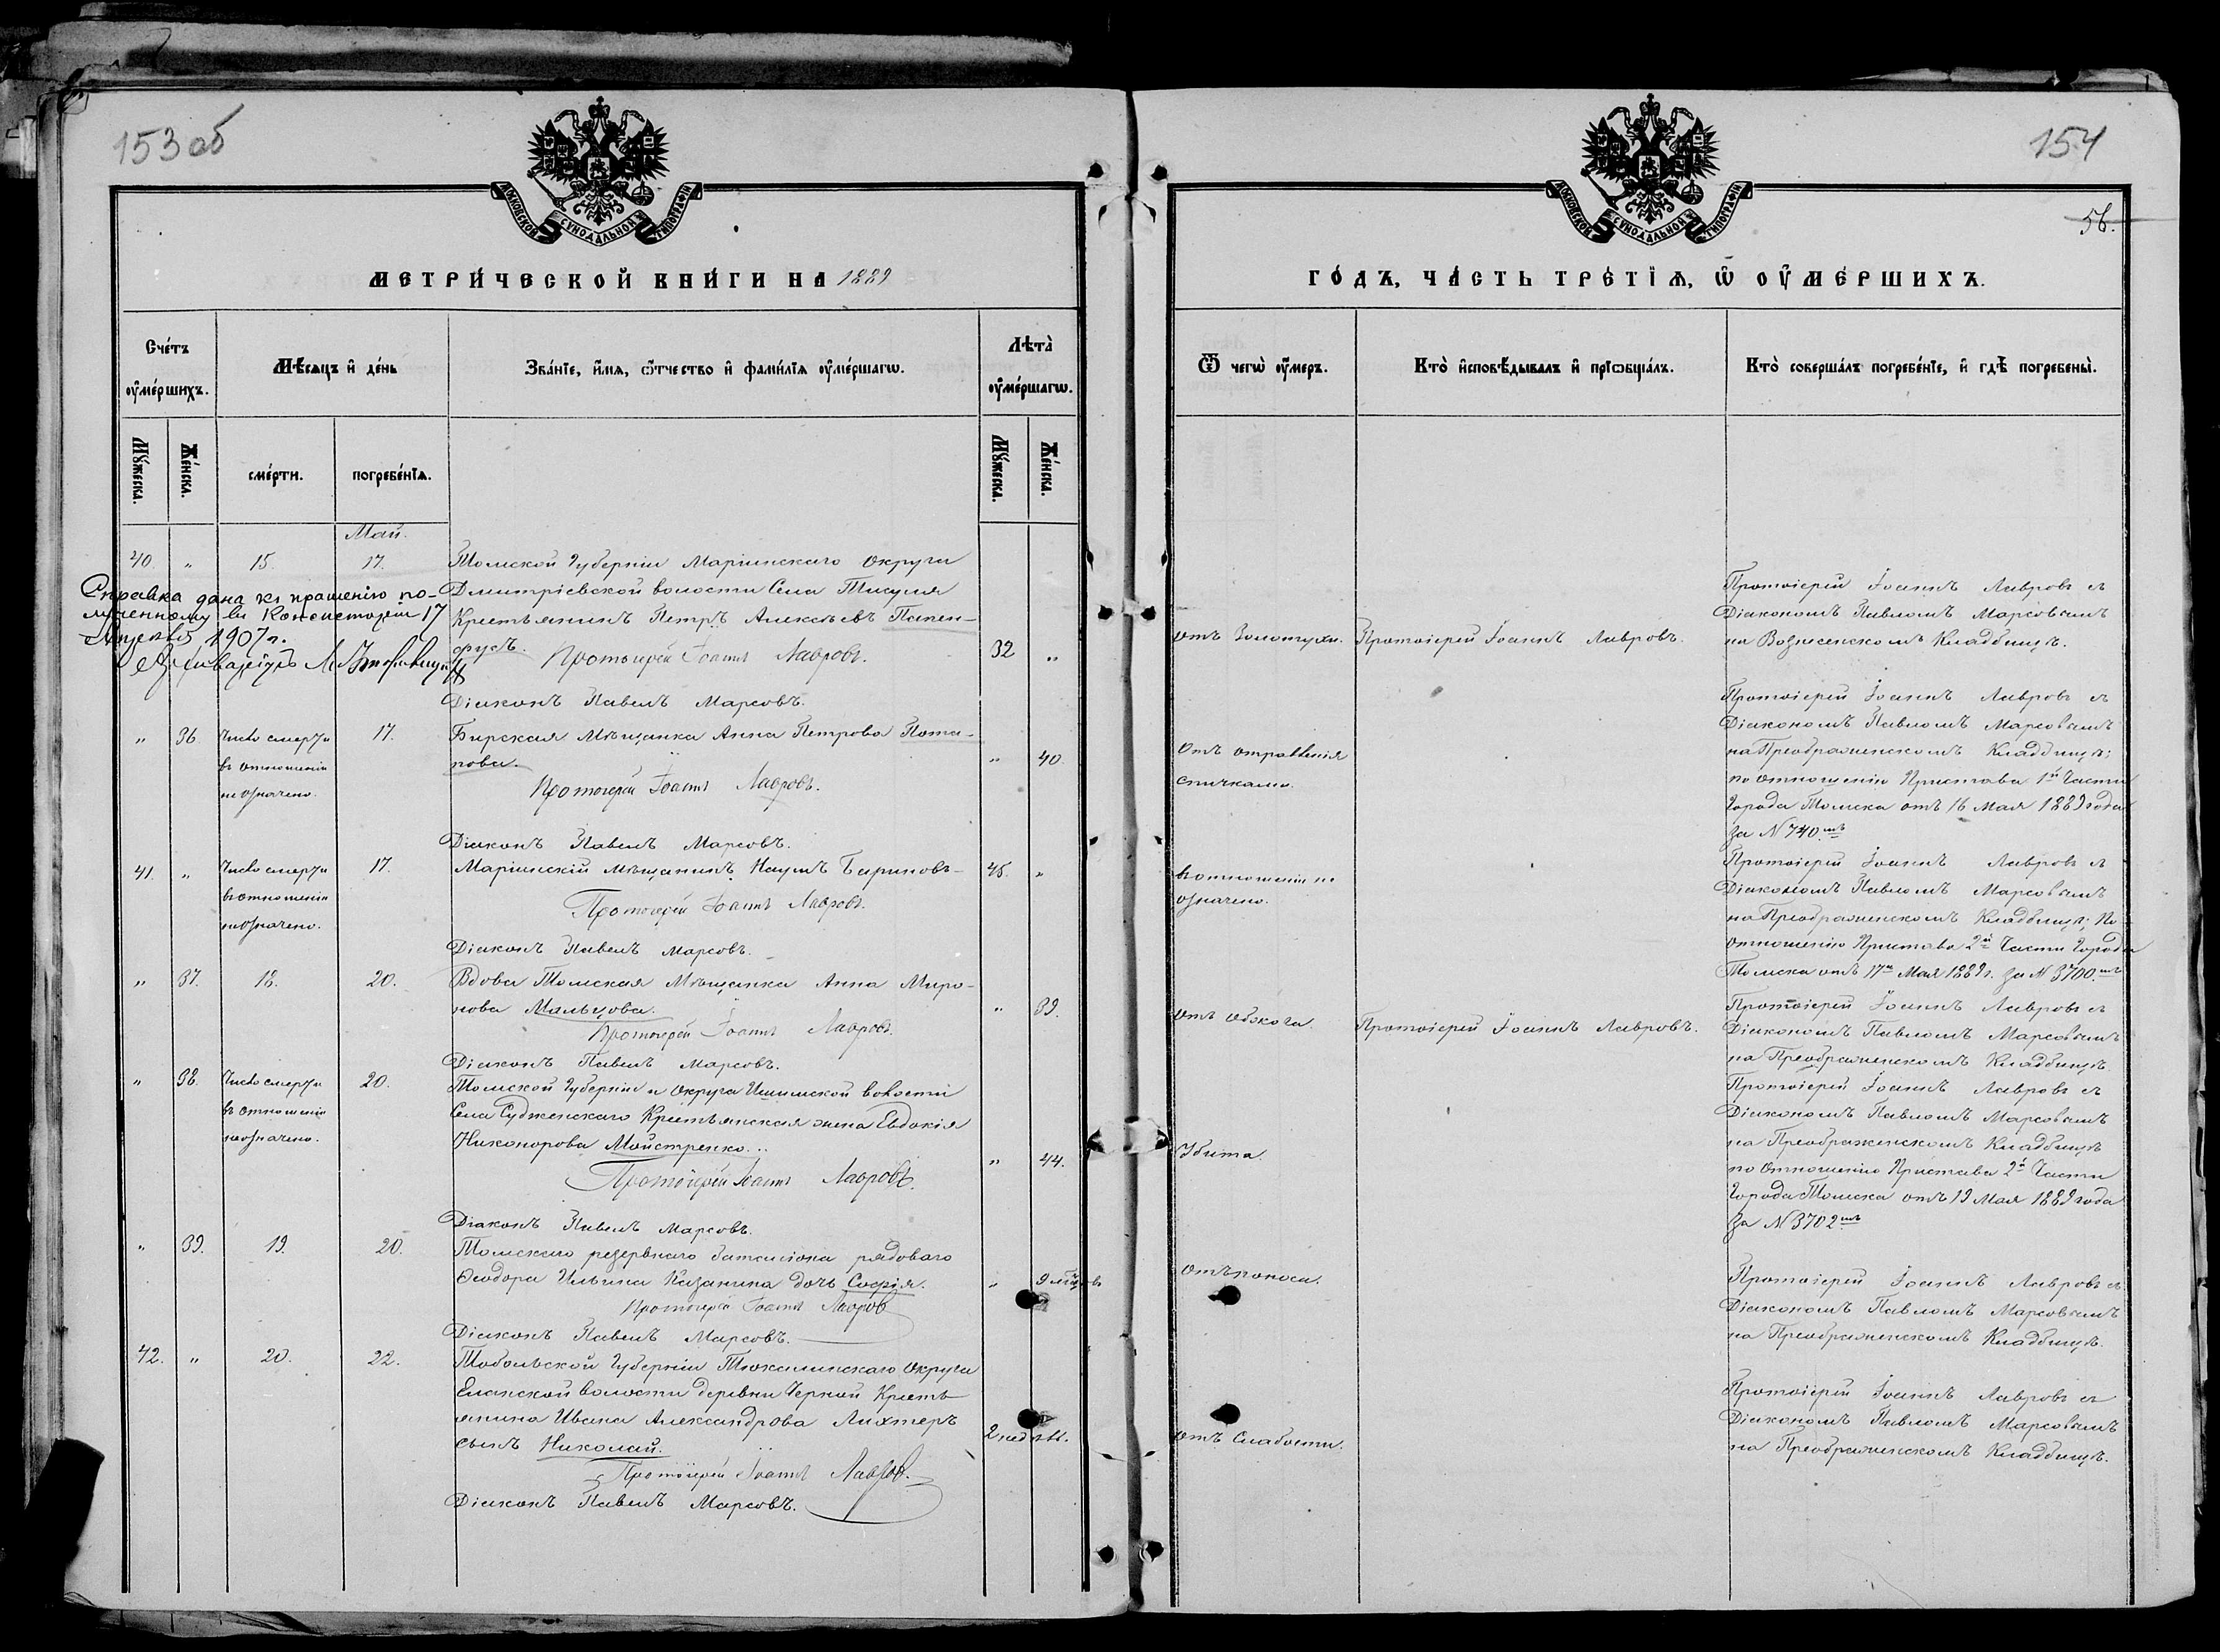 153 об
МОСКОВСКОЙ СѴНОДАЛЬНОЙ ТИПОГРАФІИ
МЕТРИ́ЧЕСКОЙ КНИ́ГИ НА 1889
Сче́тъ ᲂу҆ме́ршихъ.
Мѣ́сяцъ и҆ де́нь
Зва́нїе, и҆́мѧ, ѻ҆́тчество и҆ фами́лїѧ ᲂу҆ме́ршагѡ.
Лѣта̀ ᲂу҆ме́ршагѡ.
Мꙋ́жеска.
Же́нска.
сме́рти.
погребе́нїѧ.
Мꙋ́жеска.
Же́нска.
Май.
40. " 15. 17. Томской Губерніи Маріинскаго Округа
Дмитріевской волости Села Тисуля
Крестьянинъ Петръ Алексѣевъ Папен-
фусъ. 32 "
Протоіерей Іоаннъ Лавровъ.
Діаконъ Павелъ Марсовъ.
Справка дана къ прошенію по-
лученному въ Консисторіи 17
1907 г.
" 36. Число смерти 17. Бирская Мѣщанка Анна Петрова Пота-
въ отношеніи
пова. " 40.
не означено.
Протоіерей Іоаннъ Лавровъ.
Діаконъ Павелъ Марсовъ.
41. " Число смерти 17. Маріинскій мѣщанинъ Наумъ Бариновъ 45. "
въ отношеніи
не означено.
Протоіерей Іоаннъ Лавровъ.
Діаконъ Павелъ Марсовъ.
" 37. 18. 20. Вдова Томская Мѣщанка Анна Миро-
нова Мальцова. " 39.
Протоіерей Іоаннъ Лавровъ.
Діаконъ Павелъ Марсовъ.
" 38. Число смерти 20. Томской Губерніи и Округа Ишимской волости
въ отношеніи
Села Судженскаго Крестьянская жена Евдокія
не означено.
Никонорова Мойстренко. " 44.
Протоіерей Іоаннъ Лавровъ.
Діаконъ Павелъ Марсовъ.
" 39. 19. 20. Томскаго резервнаго баталіона рядоваго
Ѳеодора Ильина Казанина дочь Софія. " 9 мѣс-въ
Протоіерей Іоаннъ Лавровъ
Діаконъ Павелъ Марсовъ.
42. " 20. 22. Тобольской Губерніи Тюкалинскаго Округа
Еланской волости деревни Черной Кресть-
янина Ивана Александрова Лихтеръ
сынъ Николай. 2 недѣль.
Протоіерей Іоаннъ Лавровъ.
Діаконъ Павелъ Марсовъ.
154
56.
МОСКОВСКОЙ СѴНОДАЛЬНОЙ ТИПОГРАФІИ
ГО́ДЪ, ЧА́СТЬ ТРЕ́ТЇѦ, Ѡ҆ ОУ҆МЕ́РШИХЪ.
Ѿ чегѡ̀ ᲂу҆́меръ.
Кто̀ и҆сповѣ́дывалъ и҆ прїѡбща́лъ.
Кто̀ соверша́лъ погребе́нїе, и҆ гдѣ̀ погребены̀.
отъ Золотухи.
Протоіерей Іоаннъ Лавровъ.
Протоіерей Іоаннъ Лавровъ съ
Діакономъ Павломъ Марсовымъ
на Вознесенскомъ Кладбищѣ.
Отъ отравленія
спичками.
Протоіерей Іоаннъ Лавровъ съ
Діакономъ Павломъ Марсовымъ
на Преображенскомъ Кладбищѣ;
по отношенію Пристава 1й Части
Города Томска отъ 16 Мая 1889 года
за № 740.мъ
въ отношеніи не
означено.
Протоіерей Іоаннъ Лавровъ съ
Діакономъ Павломъ Марсовымъ
на Преображенскомъ Кладбищѣ; по
отношенію Пристава 2й Части Города
Томска отъ 17го Мая 1889 г. за № 3700.мъ
отъ ожога.
Протоіерей Іоаннъ Лавровъ.
Протоіерей Іоаннъ Лавровъ съ
Діакономъ Павломъ Марсовымъ
на Преображенскомъ Кладбищѣ.
Убита.
Протоіерей Іоаннъ Лавровъ съ
Діакономъ Павломъ Марсовымъ
на Преображенскомъ Кладбищѣ
по Отношенію Пристава 2й Части
Города Томска отъ 19 Мая 1889 года
за № 3702мъ
отъ поноса.
Протоіерей Іоаннъ Лавровъ съ
Діакономъ Павломъ Марсовымъ
на Преображенскомъ Кладбищѣ.
отъ Слабости.
Протоіерей Іоаннъ Лавровъ съ
Діакономъ Павломъ Марсовымъ
на Преображенскомъ Кладбищѣ.